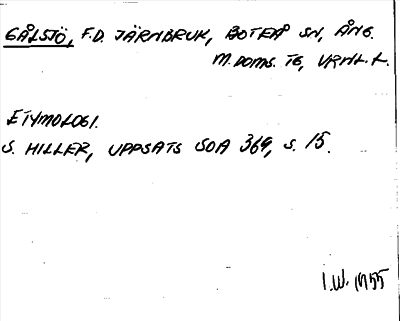 GÅLSJÖ, F.D. JÄRNBRUK, BOTEÅ SN, ÅNG.
M. DOMS. TG, VRML. L.
ETYMOLOGI.
S. HILLER, UPPSATS SOA 369, S. 15.
I.W. 1955